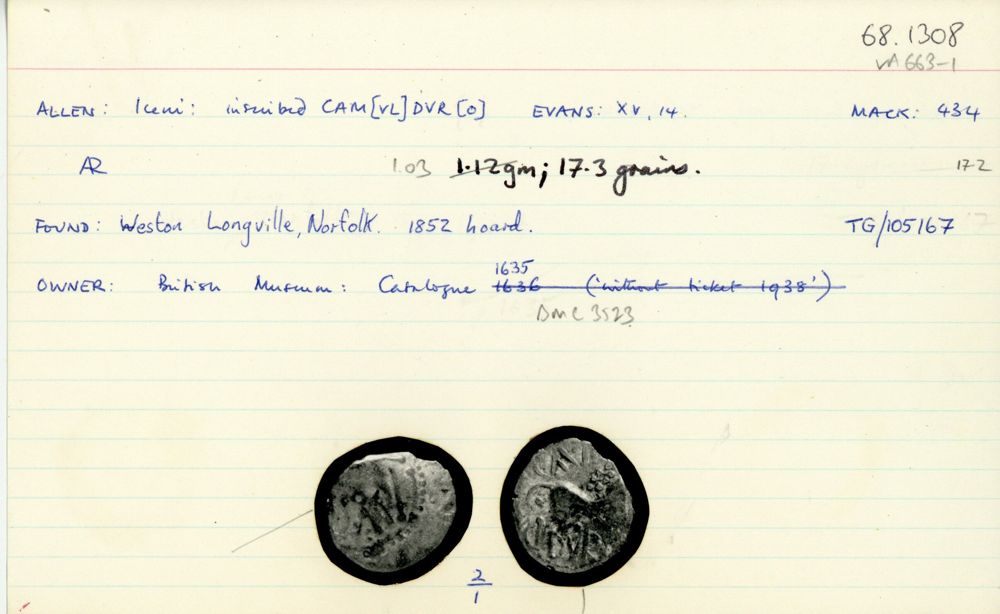 68.1308
VA 663-1
ALLEN: Iceni: inscribed CAM[VL]DVR[O] EVANS: XV, 14. MACK: 434
AR 1.03 1.12gm; 17.3 grains. 17.2
FOUND: Weston Longville, Norfolk. 1852 hoard. TG/105167
1635
OWNER: British Museum: Catalogue 1636 ('without ticket 1938')
BMC 3523
2
1